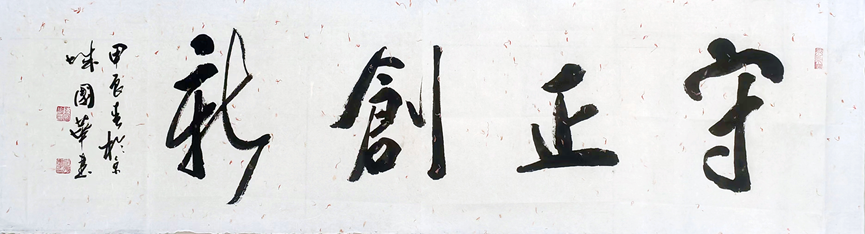 守正創新
甲辰春於京
城國華書